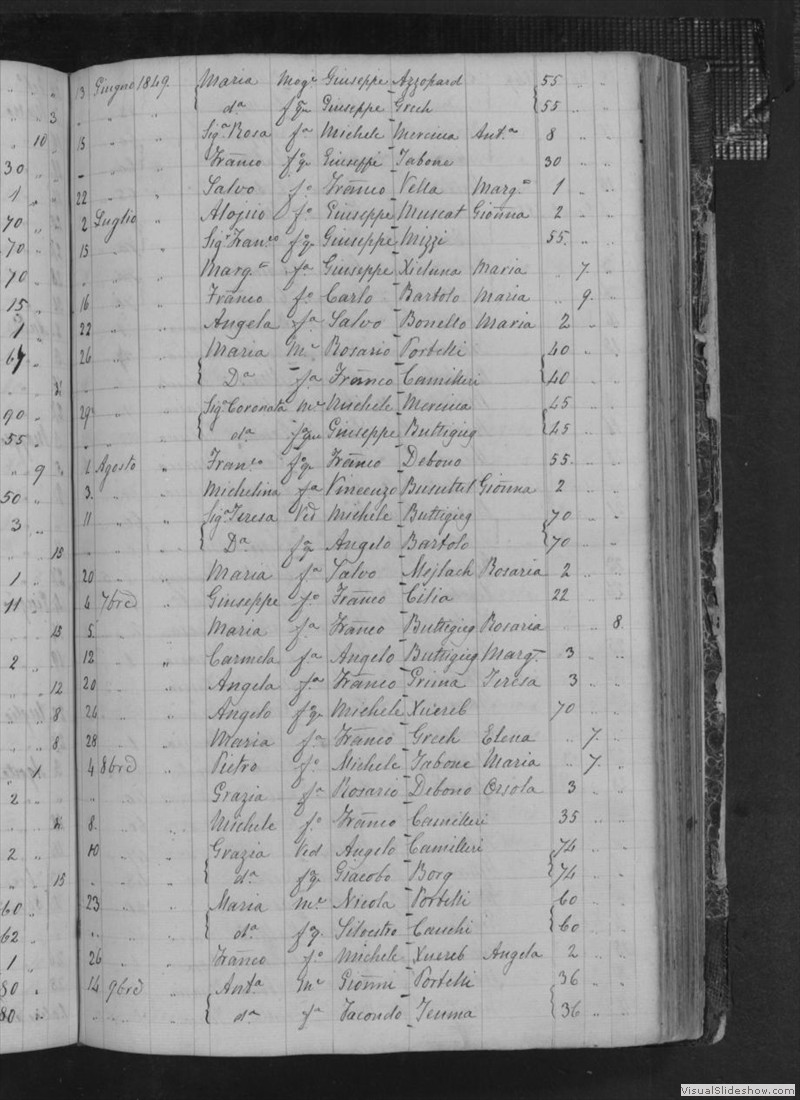 13 Giugno 1849. Maria Mogᵉ Giuseppe Azzopard 55 " "
" " " dᵃ fqm Giuseppe Grech 55 " "
15 " " Sigᵃ Rosa fᵃ Michele Mercieca Antᵃ 8 " "
" " " Franco fqm Giuseppe Tabone 30 " "
22 " " Salvo fº Franco Vella Margᵃ 1 " "
2 Luglio " Alojsio fº Giuseppe Muscat Gionna 2 " "
15 " " Sigʳ Franco fqm Giuseppe Mizzi 55 " "
" " " Margᵗ fᵃ Giuseppe Xicluna Maria " 7 "
16 " " Franco fº Carlo Bartolo Maria " 9 "
22 " " Angela fᵃ Salvo Bonello Maria 2 " "
26 " " Maria Mᵉ Rosario Portelli 40 " "
" " " Dᵃ fᵃ Franco Camilleri 40 " "
29 " " Sigᵃ Coronata mᵉ Michele Mercieca 45 " "
" " " dᵃ fqm Giuseppe Buttigieg 45 " "
Agosto " Franco fqm Franco Debono 55 " "
3 " " Michelina fᵃ Vincenzo Busuttil Gionna 2 " "
11 " " Sigᵃ Teresa Ved Michele Buttigieg 70 " "
" " " Dᵃ fqm Angelo Bartolo 70 " "
20 " " Maria fᵃ Salvo Mejlach Rosaria 2 " "
4 7bre " Giuseppe fº Franco Cilia 22 " "
5 " " Maria fᵃ Franco Buttigieg Rosaria " " 8
12 " " Carmela fᵃ Angelo Buttigieg Margᵗ 3 " "
20 " " Angela fᵃ Franco Grima Teresa 3 " "
26 " " Angelo fqm Michele Xuereb 70 " "
28 " " Maria fᵃ Franco Grech Elena " 7 "
4 8bre " Pietro fº Michele Tabone Maria " 7 "
" " " Grazia fᵃ Rosario Debono Orsola 3 " "
8 " " Michele fº Franco Camilleri 35 " "
10 " " Grazia Ved Angelo Camilleri 74 " "
" " " dᵃ fqm Giacobo Borg 74 " "
23 " " Maria mᵉ Nicola Portelli 60 " "
" " " dᵃ fqm Silvestro Cauchi 60 " "
26 " " Franco fº Michele Xuereb Angela 2 " "
14 9bre " Antᵃ mᵉ Gionni Portelli 36 " "
" " " dᵃ fᵃ Facondo Teuma 36 " "
VisualSlideshow.com